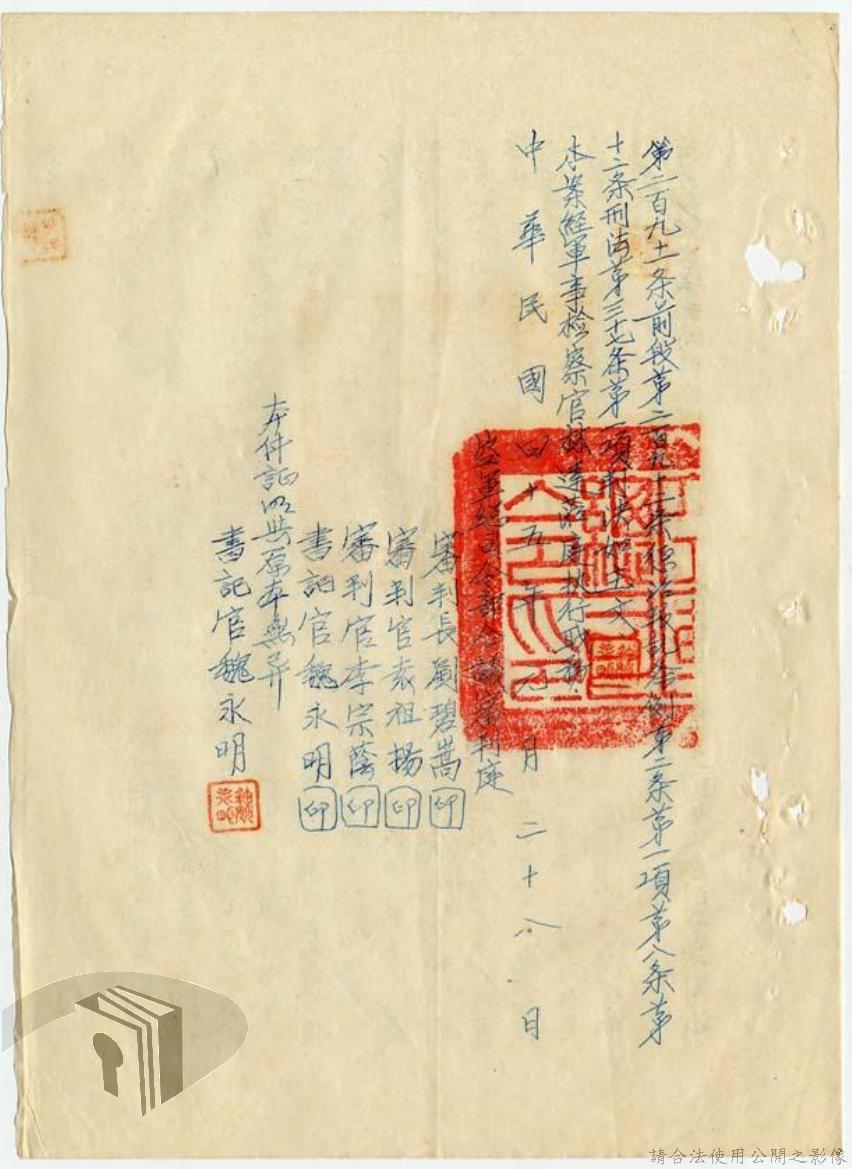 第二百九十一条前段第二百九十二条懲治叛乱条例第二条第一項第八条第
十二条刑法第三十七条第一項判决如主文
本案經軍事檢察官林達蒞庭执行職務
中華民國四十五年元月二十八日
空軍總司令部合議審判庭
審判長劉碧嵩印
審判官袁祖揚印
審判官李宗蔭印
書記官魏永明印
本件証明与原本無异
書記官魏永明
請合法使用公開之影像